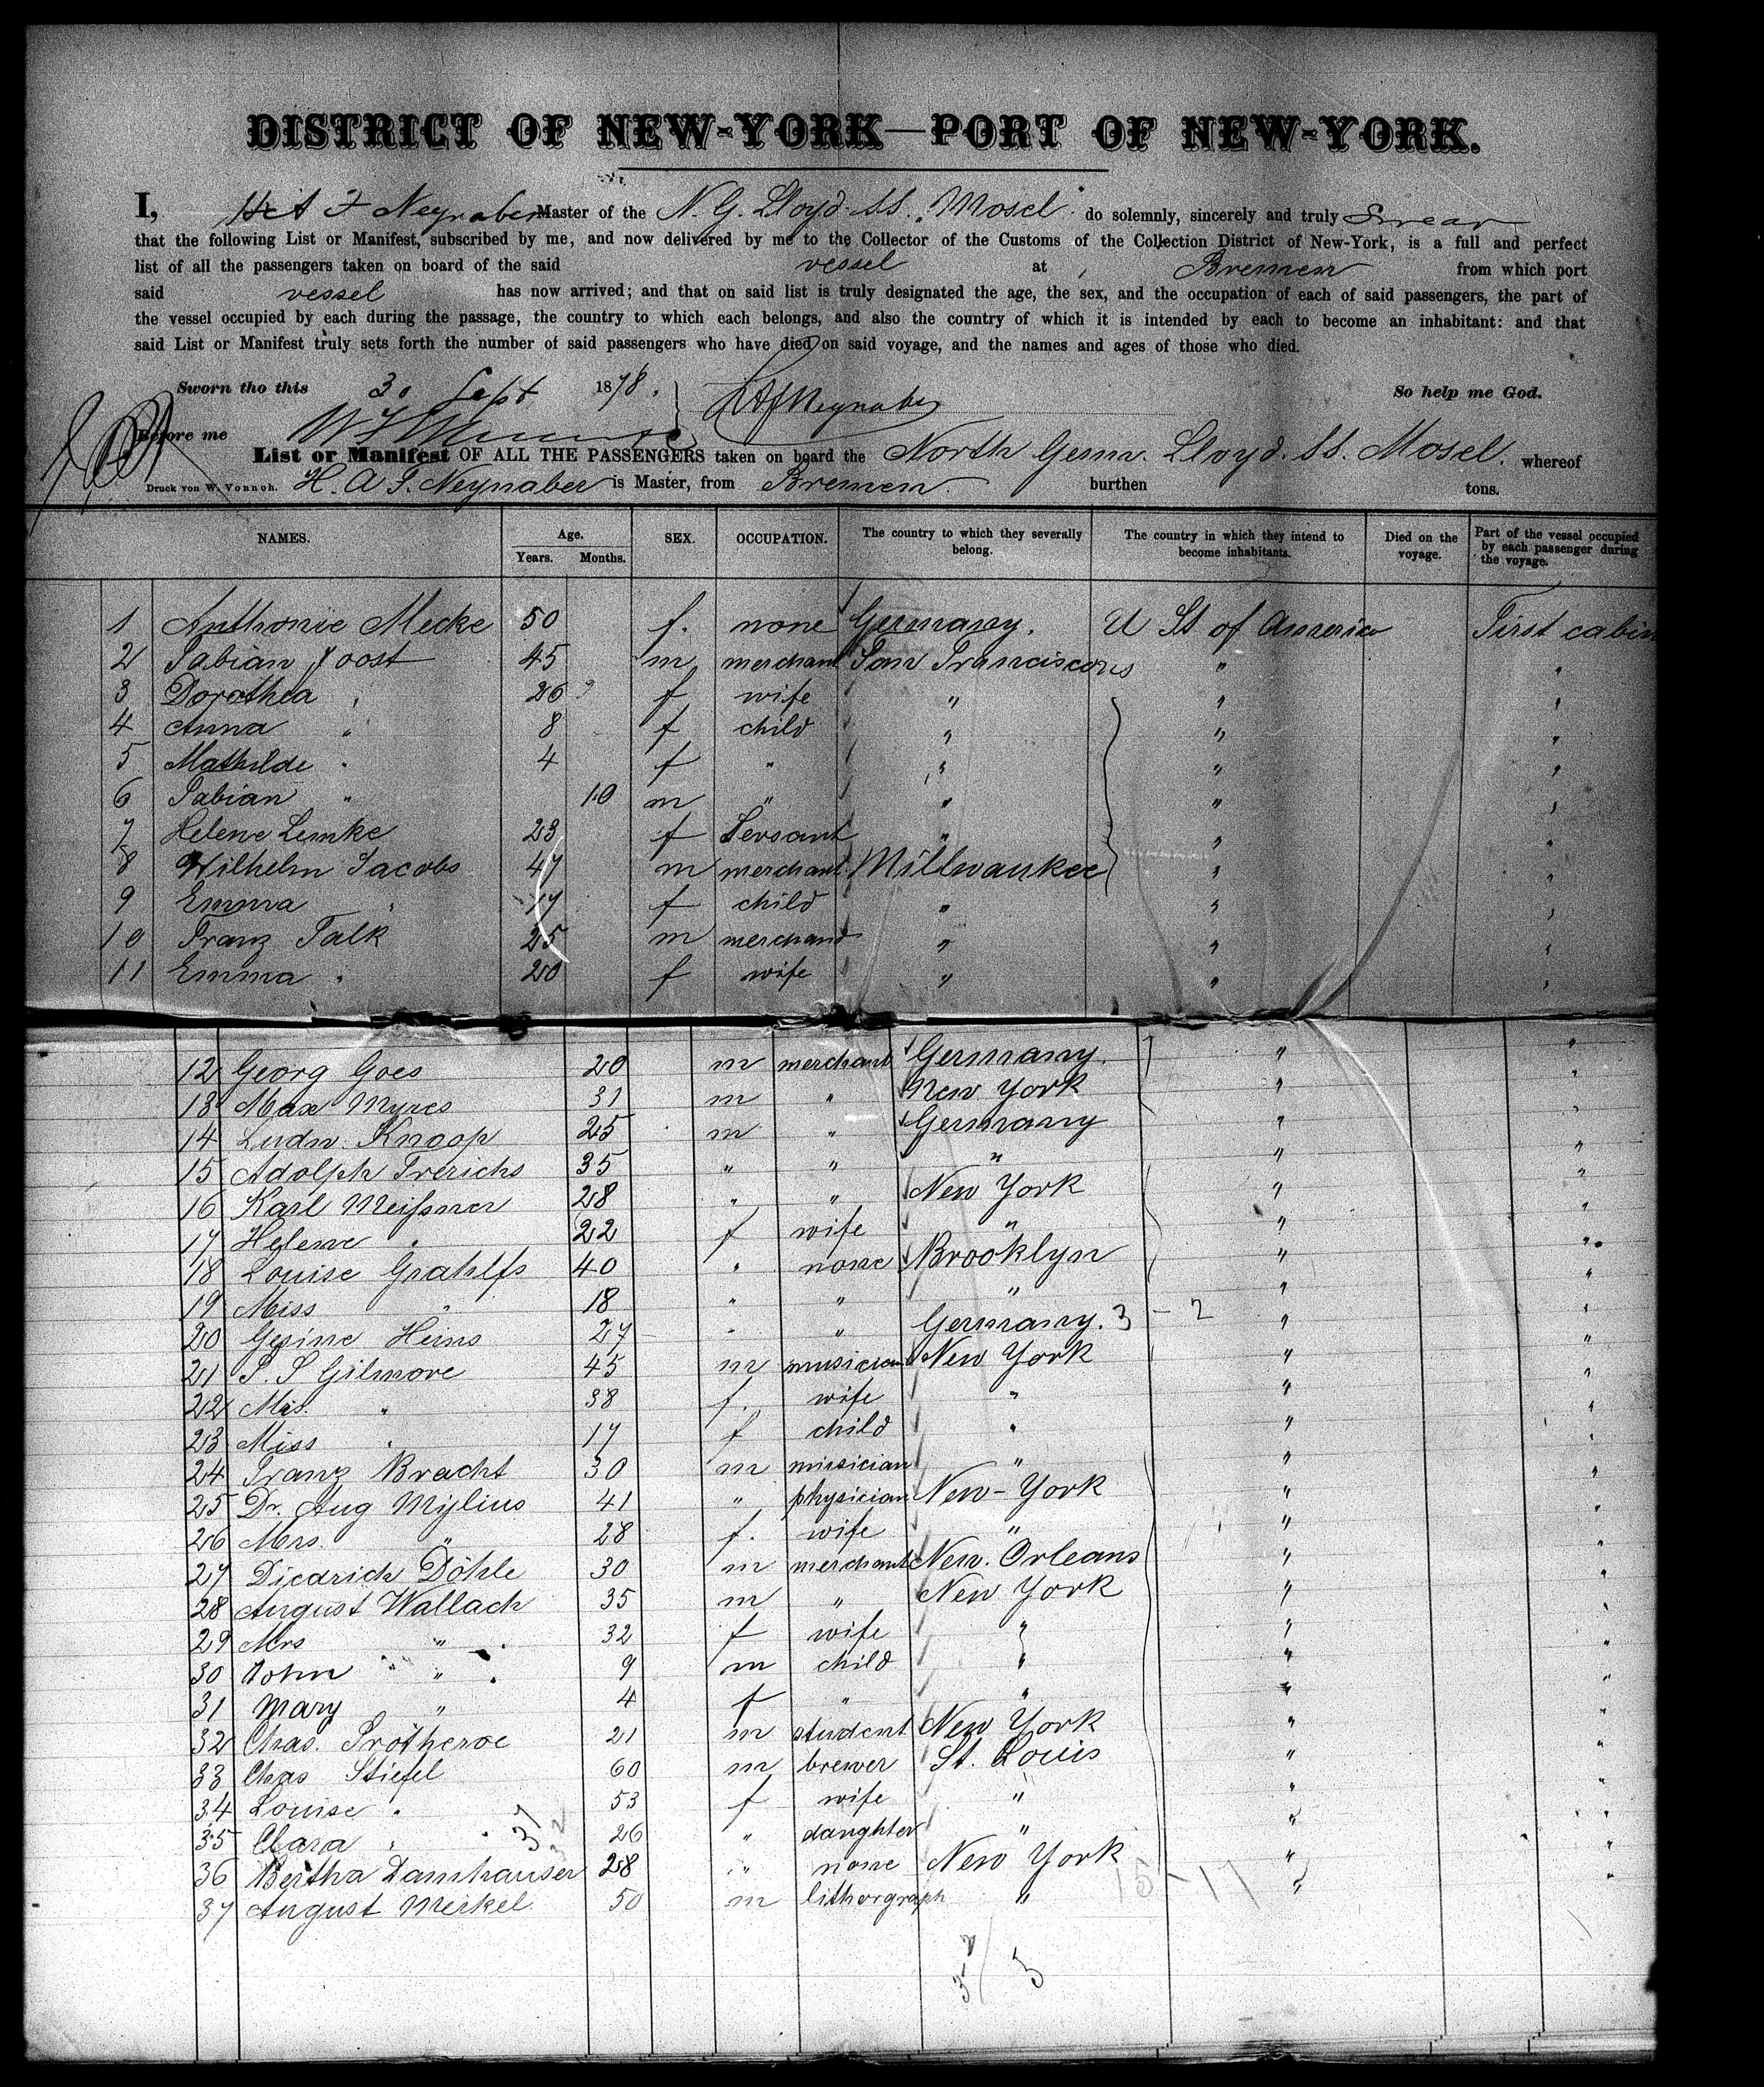 DISTRICT OF NEW-YORK—PORT OF NEW-YORK.
I, H. A. F. Neynaber Master of the N. G. Lloyd. SS. „Mosel" do solemnly, sincerely and truly Swear
that the following List or Manifest, subscribed by me, and now delivered by me to the Collector of the Customs of the Collection District of New-York, is a full and perfect
list of all the passengers taken on board of the said vessel at Bremen from which port
said vessel has now arrived; and that on said list is truly designated the age, the sex, and the occupation of each of said passengers, the part of
the vessel occupied by each during the passage, the country to which each belongs, and also the country of which it is intended by each to become an inhabitant: and that
said List or Manifest truly sets forth the number of said passengers who have died on said voyage, and the names and ages of those who died.
Sworn tho this 30 Sept 1878. HAFNeynaber So help me God.
Before me
List or Manifest OF ALL THE PASSENGERS taken on board the North Germ. Lloyd. SS. Mosel. whereof
Druck von W. Vonnoh. H. A. F. Neynaber is Master, from Bremen. burthen tons.
NAMES. Age. Years. Months. SEX. OCCUPATION. The country to which they severally belong. The country in which they intend to become inhabitants. Died on the voyage. Part of the vessel occupied by each passenger during the voyage.
1 Anthonie Mecke 50 f. none Germany. U St of America First cabin
2 Fabian Joost 45 m merchant San Franciscous " "
3 Dorothea " 26 f wife " " "
4 Anna " 8 f child " " "
5 Mathilde " 4 f " " " "
6 Fabian " 10 m " " " "
7 Helene Lemke 23 f Servant " " "
8 Wilhelm Jacobs 47 m merchant Millwaukee " "
9 Emma " 17 f child " " "
10 Franz Falk 25 m merchand " " "
11 Emma " 20 f wife " " "
12 Georg Goes 20 m merchant Germany. " "
13 Max Myres 31 m " New York " "
14 Ludw. Knoop 25 m " Germany " "
15 Adolph Frerichs 35 " " " " "
16 Karl Meißner 28 " " New York " "
17 Helene " 22 f wife " " "
18 Louise Grahlfs 40 " none Brooklyn " "
19 Miss " 18 " " " " "
20 Gesine Heins 27 " " Germany. 3 - 2 " "
21 P. S Gilmore 45 m musician New York " "
22 Mrs. " 38 f. wife " " "
23 Miss " 17 f child " " "
24 Franz Bracht 30 m musician " " "
25 Dr. Aug Mylius 41 " physician New-York " "
26 Mrs. " 28 f. wife " " "
27 Diedrich Döhle 30 m merchant New. Orleans " "
28 August Wallach 35 m " New York " "
29 Mrs " 32 f wife " " "
30 John " 9 m child " " "
31 Mary " 4 f " " " "
32 Chas. Protheroe 21 m student New York " "
33 Chas Stiefel 60 m brewer St. Louis " "
34 Louise " 53 f wife " " "
35 Clara " 26 " daughter " " "
36 Bertha Damhauser 28 " none New York " "
37 August Merkel 50 m lithorgraph " "